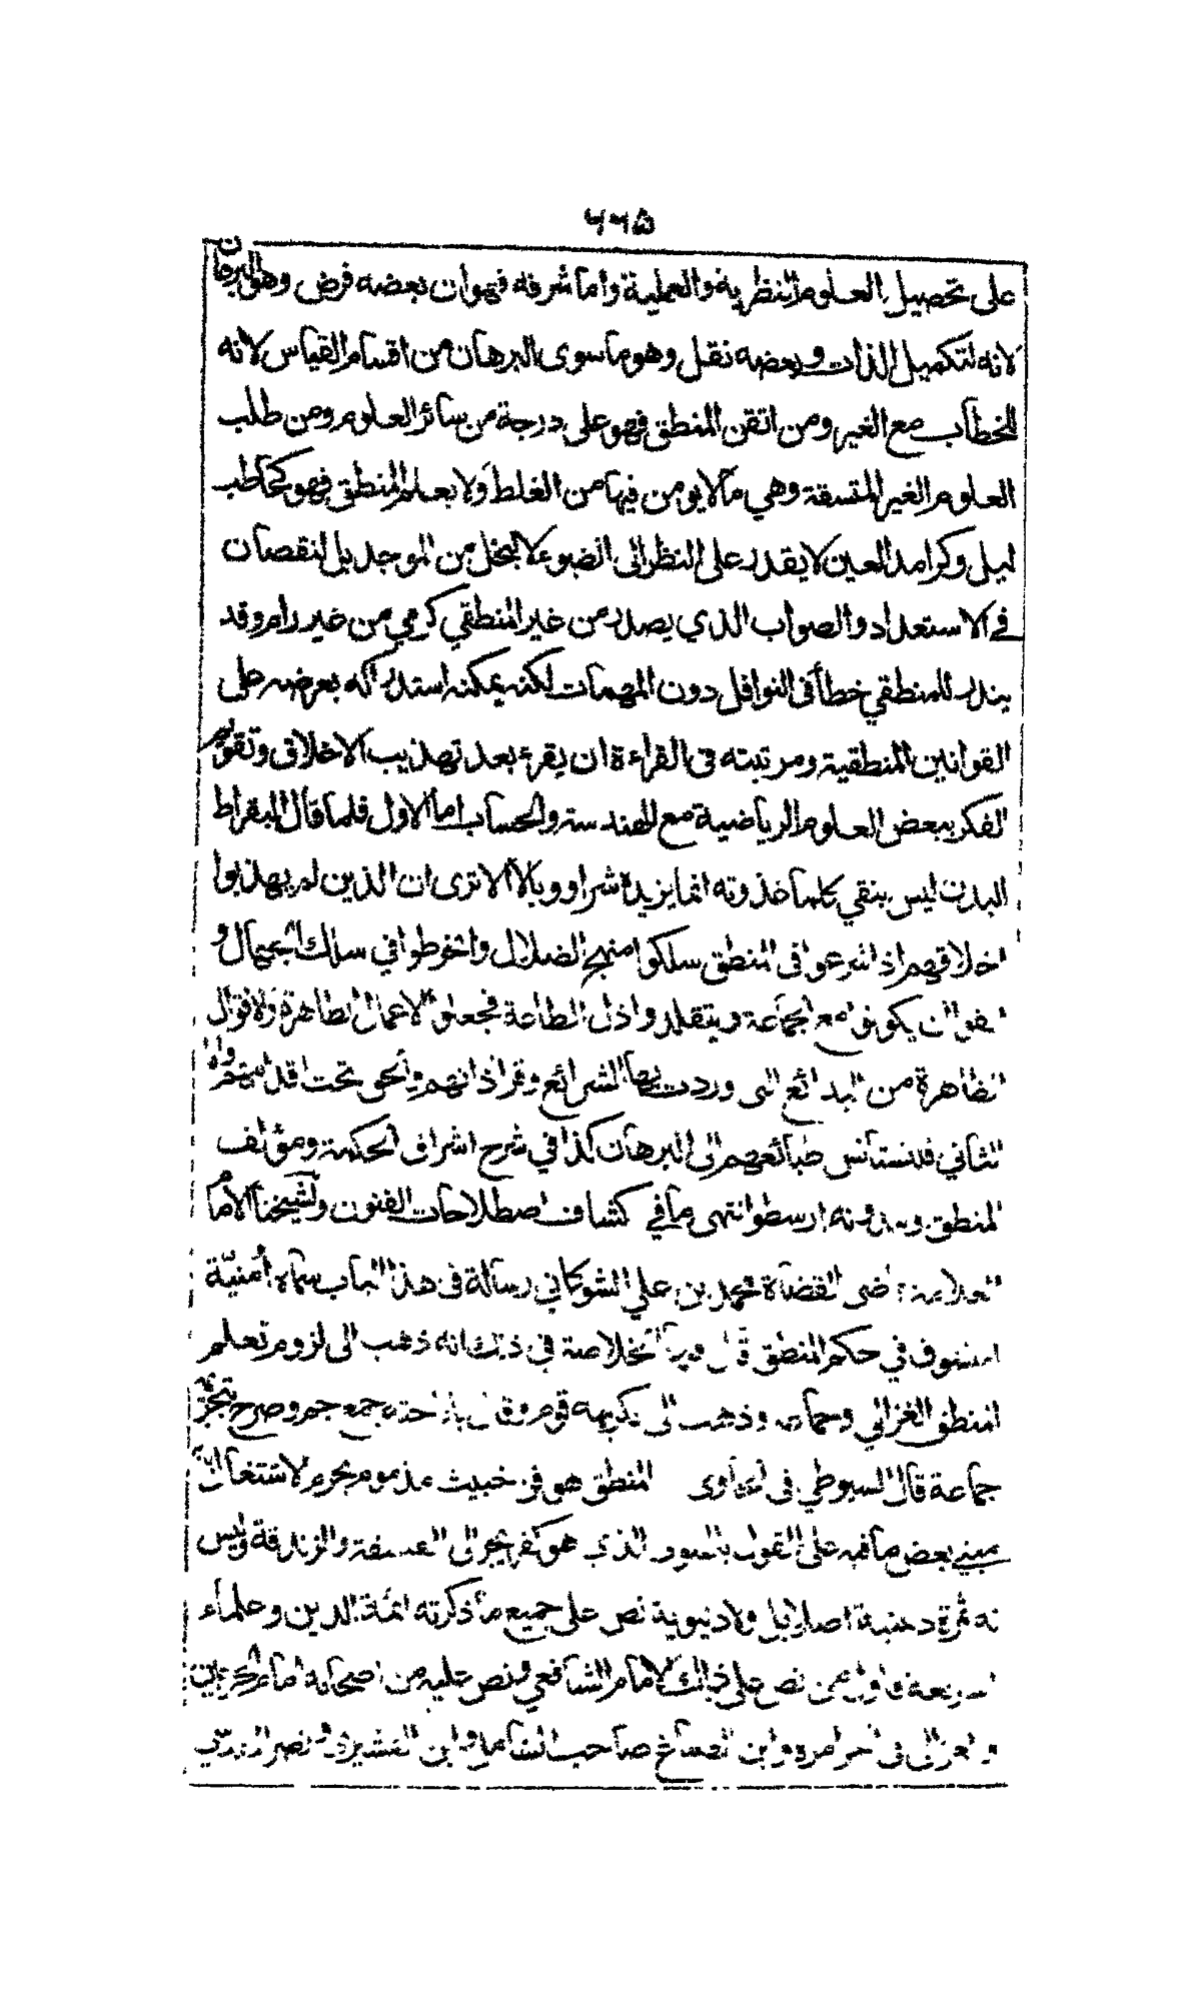 ٦٦٥
على تحصيل العلوم النظرية والعملية واما شرفه فهو ان بعضه فرض وهو البرهان
لانه لتكميل الذات وبعضه نفل وهو ما سوى البرهان من اقسام القياس لانه
للخطاب مع الغير ومن اتقن المنطق فهو على درجة من سائر العلوم ومن طلب
العلوم الغير المتسقة وهي ما لا يومن فيها من الغلط ولا يعلم المنطق فهو كحاطب
ليل وكرامد العين لا يقدر على النظر الى الضوء لا لبخل من الموجد بل لنقصان
في الاستعداد والصواب الذي يصدر من غير المنطقي كرمي من غير رام وقد
يندر للمنطقي خطأ في النوافل دون المهمات لكنه يمكنه استدراكه بعرضه على
القوانين المنطقية ومرتبته في القراءة ان يقرء بعد تهذيب الاخلاق وتقويم
الفكر ببعض العلوم الرياضية مع الهندسة والحساب اما الاول فلما قال البقراط
البدن ليس بنقي كلما غذوته انما يزيده شرا ووبالا الا ترى ان الذين لم يهذبوا
اخلاقهم اذا شرعوا في المنطق سلكوا منهج الضلال وانخرطوا في سلك الجهال و
انفوا ان يكونوا مع الجماعة ويتقلدوا ذل الطاعة فجعلوا الاعمال الطاهرة والاقوال
الظاهرة من البدائع التي وردت بها الشرائع وقر اذانهم والحق تحت اقدامهم واما
الثاني فلتستانس طبائعهم الى البرهان كذا في شرح اشراق الحكمة ومؤلف
المنطق ومدونه ارسطو انتهى ما في كشاف اصطلاحات الفنون ولشيخنا الامام
العلامة قاضى القضاة محمد بن علي الشوكاني رسالة في هذا الباب سماه أمنيّة
المتشوق في حكم المنطق قال فيها الخلاصة في ذلك انه ذهب الى لزوم تعلم
المنطق الغزالي وجماعة وذهب الى تكريهه قوم وقال باباحته جمع جم وصرح بتحريمه
جماعة قال السيوطي في الحاوى المنطق هو فن خبيث مذموم يحرم الاشتغال به
مبنى بعض ما فيه على القول بالهيولى الذي هو كفر يجر الى الفلسفة والزندقة وليس
له ثمرة دينية اصلا بل ولا دنيوية نص على جميع ما ذكرته ائمة الدين وعلماء
الشريعة فاول من نص على ذلك الامام الشافعي ونص عليه من اصحابه امام الحرمين
والغزالى في اخر امره وابن الصباغ صاحب الشامل وابن القشيري ونصر المقدسي